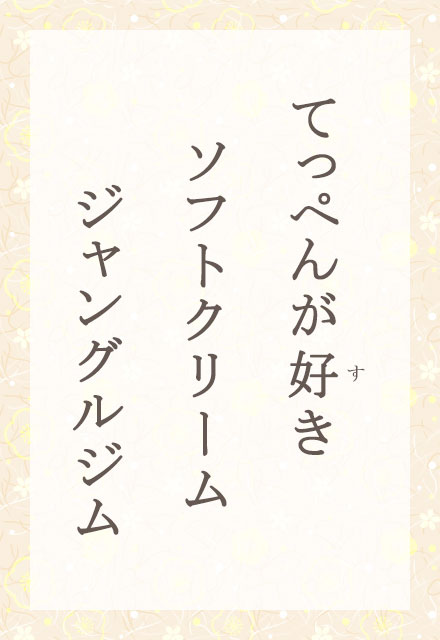 てっぺんが好き
す
ソフトクリーム
ジャングルジム